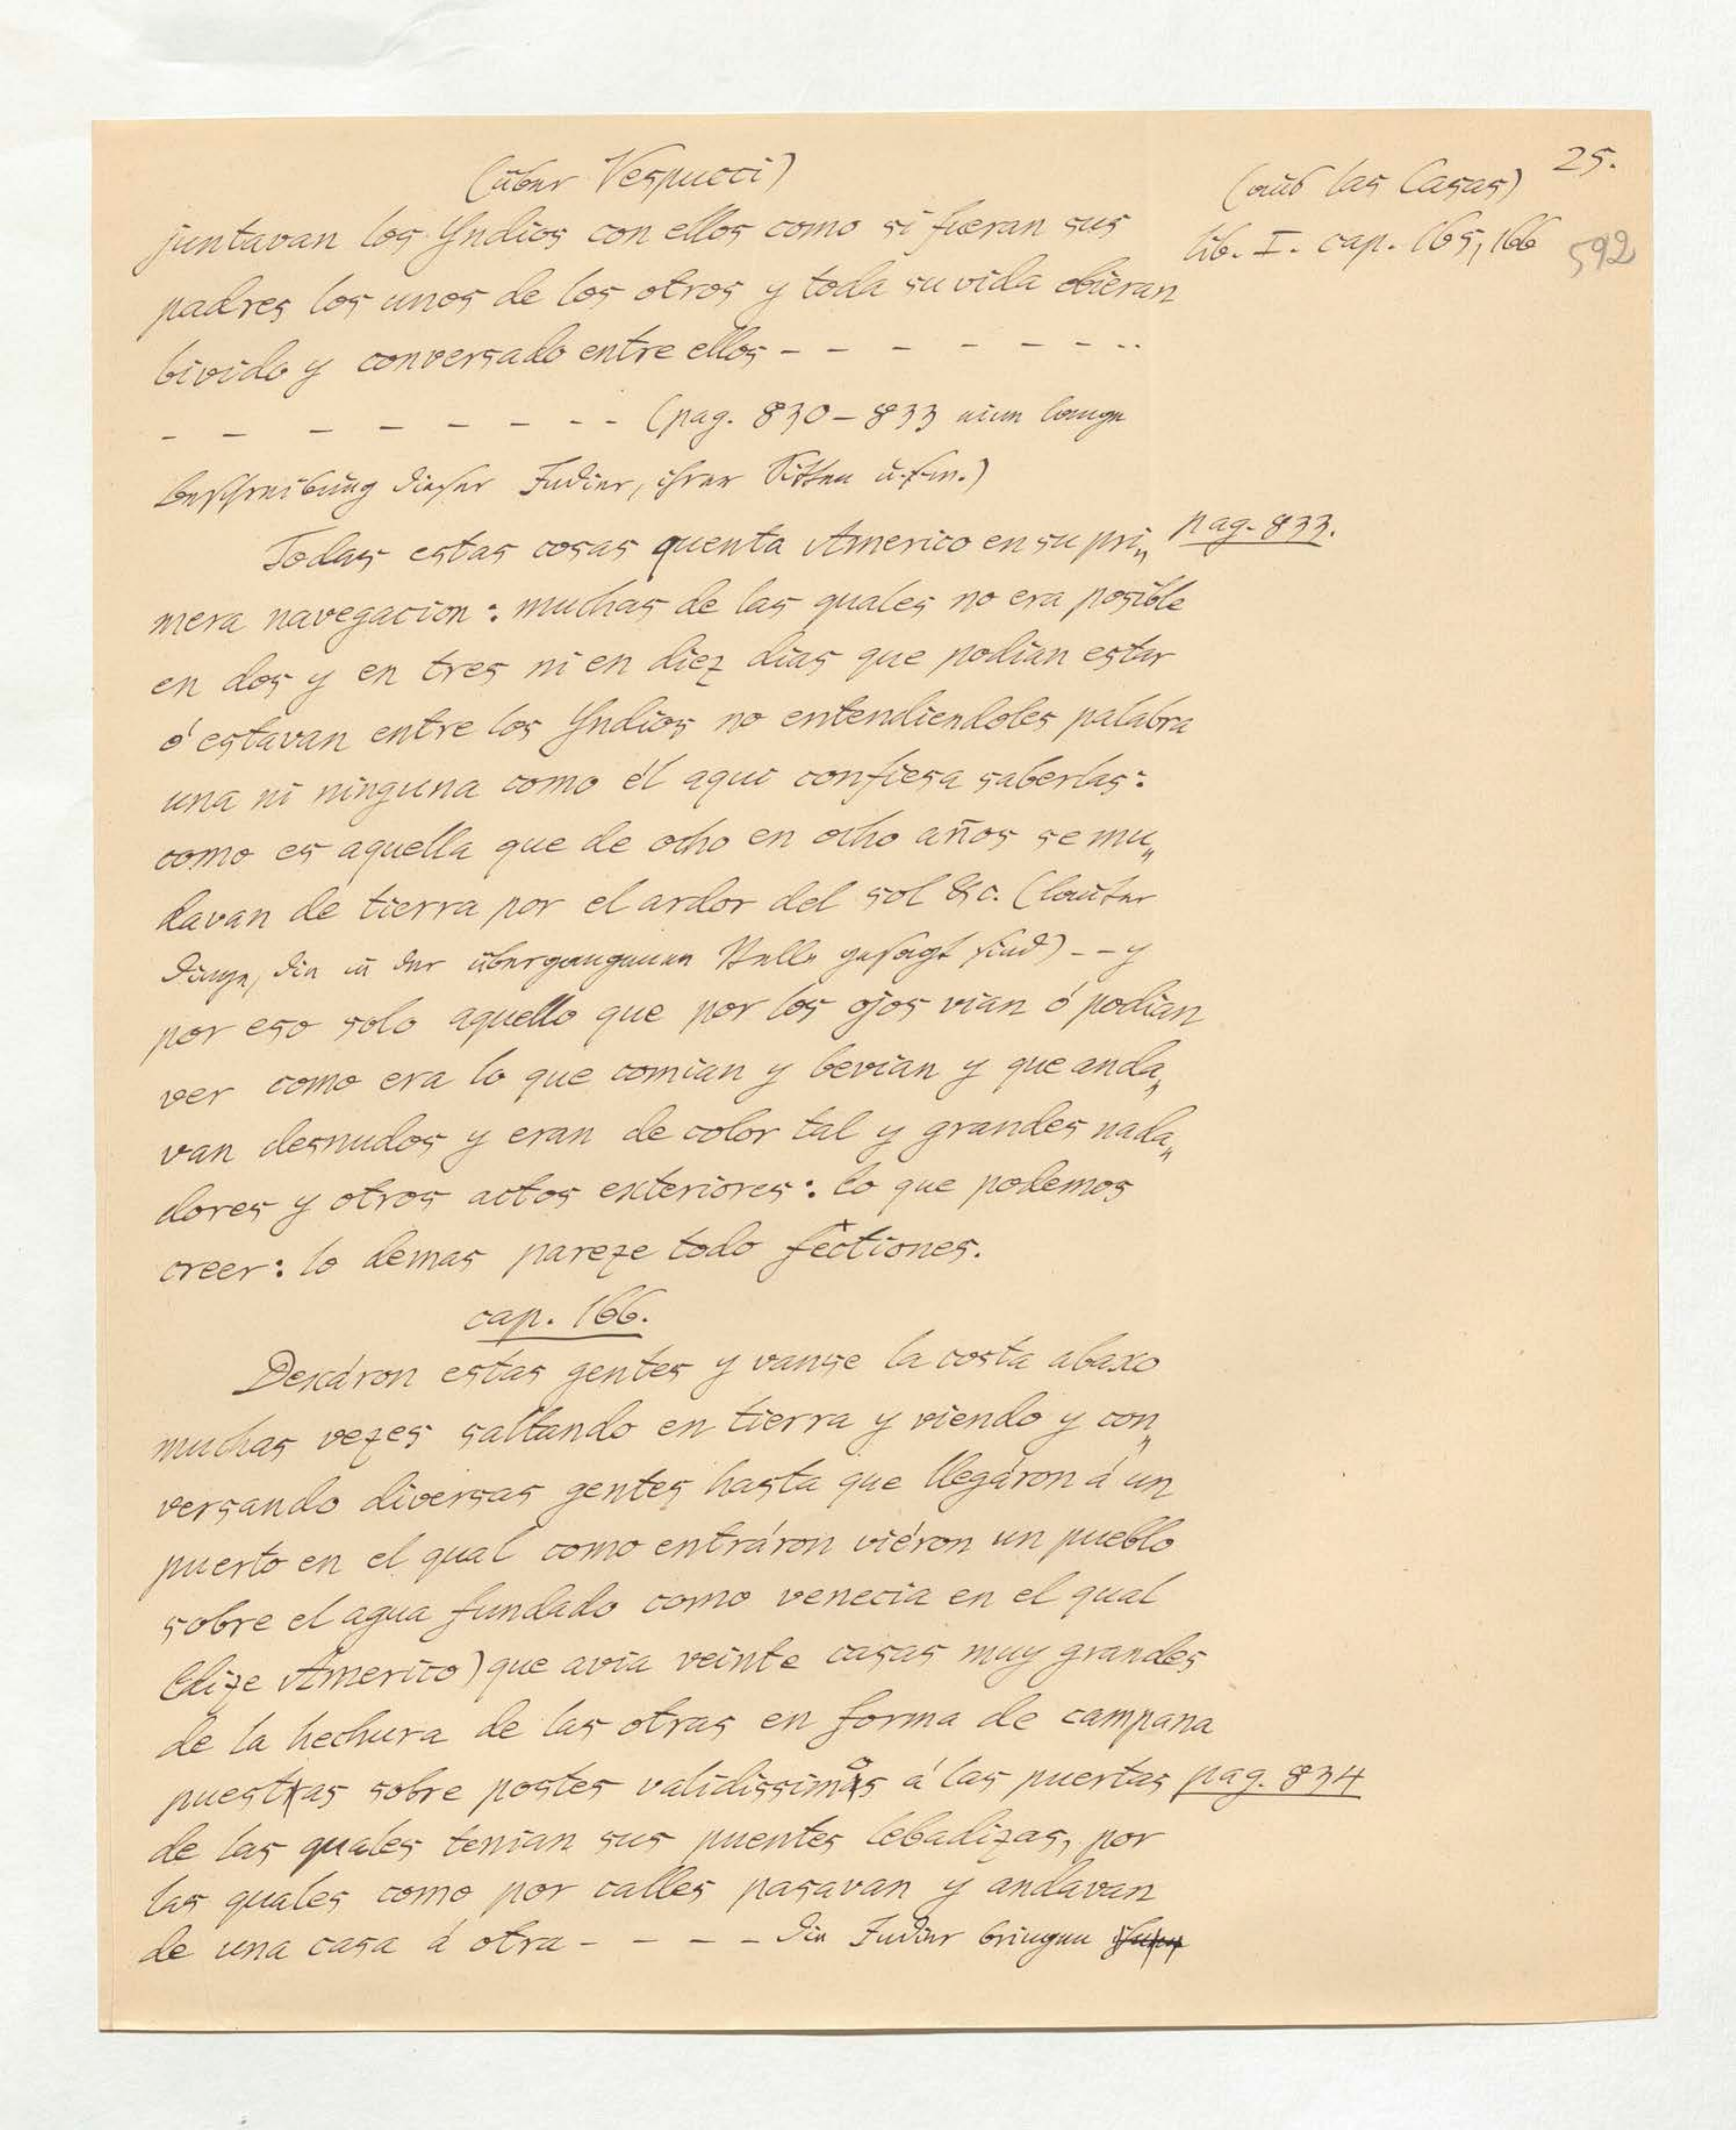 25.
(über Vespucci)
(aus las Casas)
lib. I. cap. 165, 166
592
juntavan los Yndios con ellos como si fueran sus
padres los unos de los otros y toda su vida obieran
bivido y conversado entre ellos - - - - - - - - -
- - - - - - - - - (pag. 830-833 eine lange
Beschreibung dieser Indier, ihrer Sitten u.s.w.)
Todas estas cosas quenta Americo en su pri„
pag. 833.
mera navegacion: muchas de las quales no era posible
en dos y en tres ni en diez dias que podian estar
ó estavan entre los Yndios no entendiendoles palabra
una ni ninguna como él aqui confiesa saberlas:
como es aquella que de ocho en ocho años se mu„
davan de tierra por el ardor del sol &c. (lauter
Dinge, die in der übergangenen Stelle gesagt sind) - - y
por eso solo aquello que por los ojos vian ó podian
ver como era lo que comian y bevian y que anda„
van desnudos y eran de color tal y grandes nada„
dores y otros actos exteriores: lo que podemos
creer: lo demas pareze todo fectiones.
cap. 166.
Dexáron estas gentes y vanse la costa abaxo
muchas vezes saltando en tierra y viendo y con„
versando diversas gentes hasta que llegáron á un
puerto en el qual como entráron viéron un pueblo
sobre el agua fundado como venecia en el qual
(dize Americo) que avia veinte casas muy grandes
de la hechura de las otras en forma de campana
puestas sobre postes validissimos á las puertas
pag. 834
de las quales tenian sus puentes lebadizas, por
las quales como por calles pasavan y andavan
de una casa á otra - - - - die Indier bringen